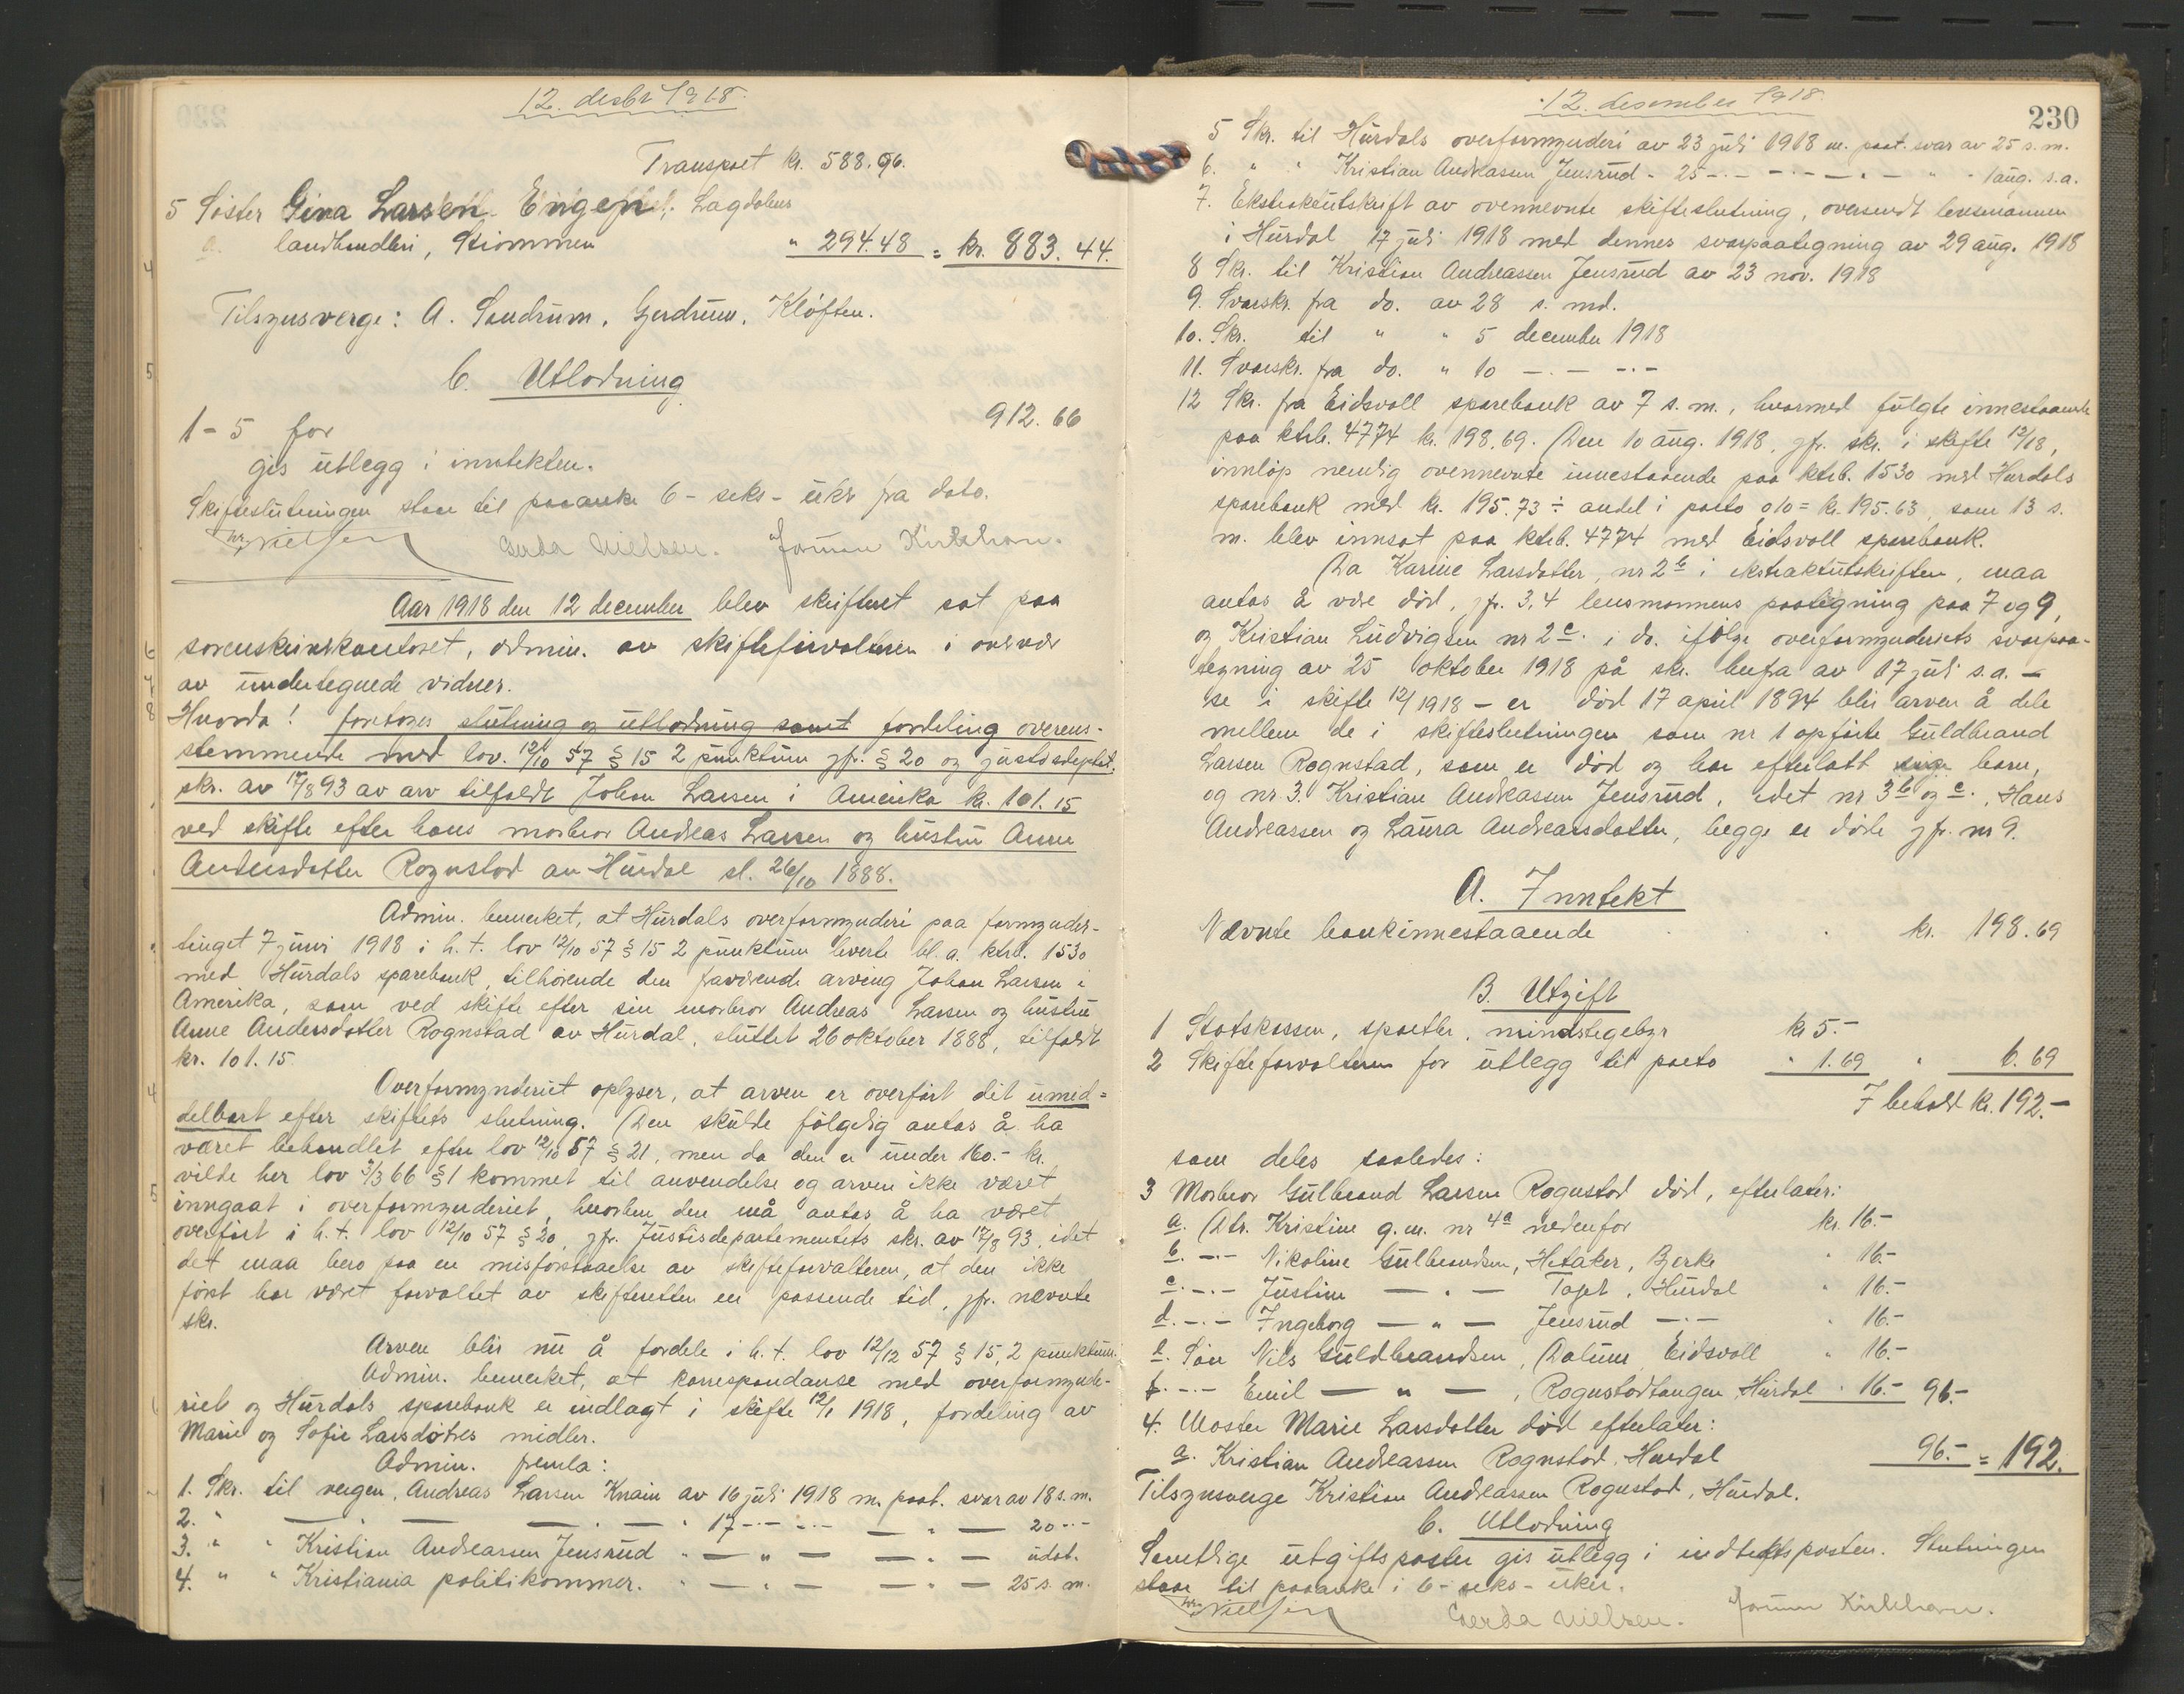 12. desbr 1918.
Transport kr. 588.96.
5 Søster Gina Larsen Engen, Lagdalens
landhandleri, Strømmen " 294.48 = kr. 883.44.
Tilsynsverge: A. Sandrum, Gjerdrum, Kløften.
C. Utlodning
1-5 for 912.66
gis utlegg i inntekten.
Skifteslutningen staar til paaanke 6 - seks - uker fra dato.
Nielsen Gerda Nielsen. Jørman Kirkhorn.
Aar 1918 den 12 december blev skifteret sat paa
sorenskriverkontoret, admin. av skifteforvalteren i overvær
av undertegnede vidner.
Hvorda! foretages slutning og utlodning samt fordeling overens-
stemmende med lov. 12/10 57 § 15 2 punktum jfr. § 20 og justisdeptet.
skr. av 17/8 93 av arv tilfaldt Johan Larsen i Amerika kr. 101.15
ved skifte efter hans morbror Andreas Larsen og hustru Anne
Andersdatter Rognstad av Hurdal sl. 26/10 1888.
Admin. bemerket, at Hurdals overformynderi paa formynder-
tinget 7 juni 1918 i h. t. lov 12/10 57 § 15 2 punktum leverte bl. a. ktrb. 1530
med Hurdals sparebank, tilhørende den fraværende arving Johan Larsen i
Amerika, som ved skifte efter sin morbror Andreas Larsen og hustru
Anne Andersdatter Rognstad av Hurdal, sluttet 26 oktober 1888, tilfaldt
kr. 101.15.
Overformynderiet oplyser, at arven er overført dit umid-
delbart efter skiftets slutning. Den skulde følgelig antas å ha
været behandlet efter lov 12/10 57 § 21, men da den er under 160.- kr.
vilde her lov 3/3 66 § 1 kommet til anvendelse og arven ikke været
inngaat i overformynderiet, hvorfor den må antas å ha været
overført i h. t. lov 12/10 57 § 20, jfr. Justisdepartementets skr. av 17/8 93, idet
det maa bero paa en misforstaaelse av skifteforvalteren, at den ikke
først har været forvaltet av skifteretten en passende tid, jfr. nævnte
skr.
Arven blir nu å fordele i h. t. lov 12/12 57 § 15, 2 punktum.
Admin. bemerket, at korrespondanse med overformynde-
riet og Hurdals sparebank er indlagt i skifte 12/1 1918, fordeling av
Marie og Sofie Larsdøtres midler.
Admin. fremla:
1. Skr. til vergen, Andreas Larsen Knain av 16 juli 1918 m. paat. svar av 18 s. m.
2. " — " — — . — " 17 -.- -.- — " — 20 -.-
3. " " Kristian Andreassen Jensrud " — " — — . — udat.
4. " " Kristiania politikammer. " — . — — . — 25 s. m.
12. desember 1918.
230
5 Skr. til Hurdals overformynderi av 23 juli 1918 m. paat. svar av 25 s. m.
6. " " Kristian Andreassen Jensrud - 25 -.- -.- — . — " - 1 aug. s.a.
7. Ekstraktutskrift av ovennevnte skifteslutning, oversendt lensmannen
i Hurdal 17 juli 1918 med dennes svarpaategning av 29 aug. 1918
8 Skr. til Kristian Andreassen Jensrud av 23 nov. 1918
9. Svarskr. fra do. av 28 s. md.
10. Skr. til " " 5 december 1918
11. Svarskr. fra do. " 10 -.- -.-
12 Skr. fra Eidsvoll sparebank av 7 s. m., hvormed fulgte innestaaende
paa ktrb. 4774 kr. 198.69. Den 10 aug. 1918, jfr. skr. i skifte 12/18,
innløp nemlig ovennevnte innestaaende paa ktrb. 1530 med Hurdals
sparebank med kr. 195.73 ÷ andel i porto 0/10 = kr. 195.63, som 13 s.
m. blev innsat paa ktrb. 4774 med Eidsvoll sparebank.
Da Karine Larsdatter, nr 2 b i ekstraktutskriften, maa
antas å være død, jfr. 3, 4 lensmannens paategning paa 7 og 9,
og Kristian Ludvigsen nr 2 c. i do. ifølge overformynderiets svarpaa-
tegning av 25 oktober 1918 på skr. herfra av 17 juli s. a. —
se i skifte 12/1918 — er død 17 april 1894 blir arven å dele
mellem de i skifteslutningen som nr 1 opførte Guldbrand
Larsen Rognstad, som er død og har efterlatt barn,
og nr 3. Kristian Andreassen Jensrud, idet nr 3 b og c., Hans
Andreassen og Laura Andreasdatter, begge er døde jfr. nr 9.
A. Inntekt
Nævnte bankinnestaaende kr. 198.69
B. Utgift
1 Statskassen, sportler, mindstegebyr kr 5.-
2 Skifteforvalteren for utlegg til porto " 1.69 " 6.69
I behold kr. 192.—
som deles saaledes:
3 Morbror Gulbrand Larsen Rognstad død, efterlater:
a. Dtr. Kristine g. m. nr 4a nedenfor kr. 16.-
b. -.- Nikoline Gulbrandsen, Hetaker, Bjerke " 16.-
c. -.- Justine — " — Taget, Hurdal " 16.-
d. -.- Ingeborg — " — Jensrud -.- " 16.-
e. Søn Nils Guldbrandsen, Dalum, Eidsvoll " 16.-
f. -.- Emil — " — , Rognstadtangen Hurdal " 16.- 96.-
4. Moster Marie Larsdatter død efterlater:
a. Kristian Andreassen Rognstad, Hurdal 96.- = 192.
Tilsynsverge Kristian Andreassen Rognstad, Hurdal.
C. Utlodning
Samtlige utgiftsposter gis utlegg i indtektsposten. Slutningen
staar til paaanke i 6 - seks - uker.
Nielsen Gerda Nielsen. Jørman Kirkhorn.